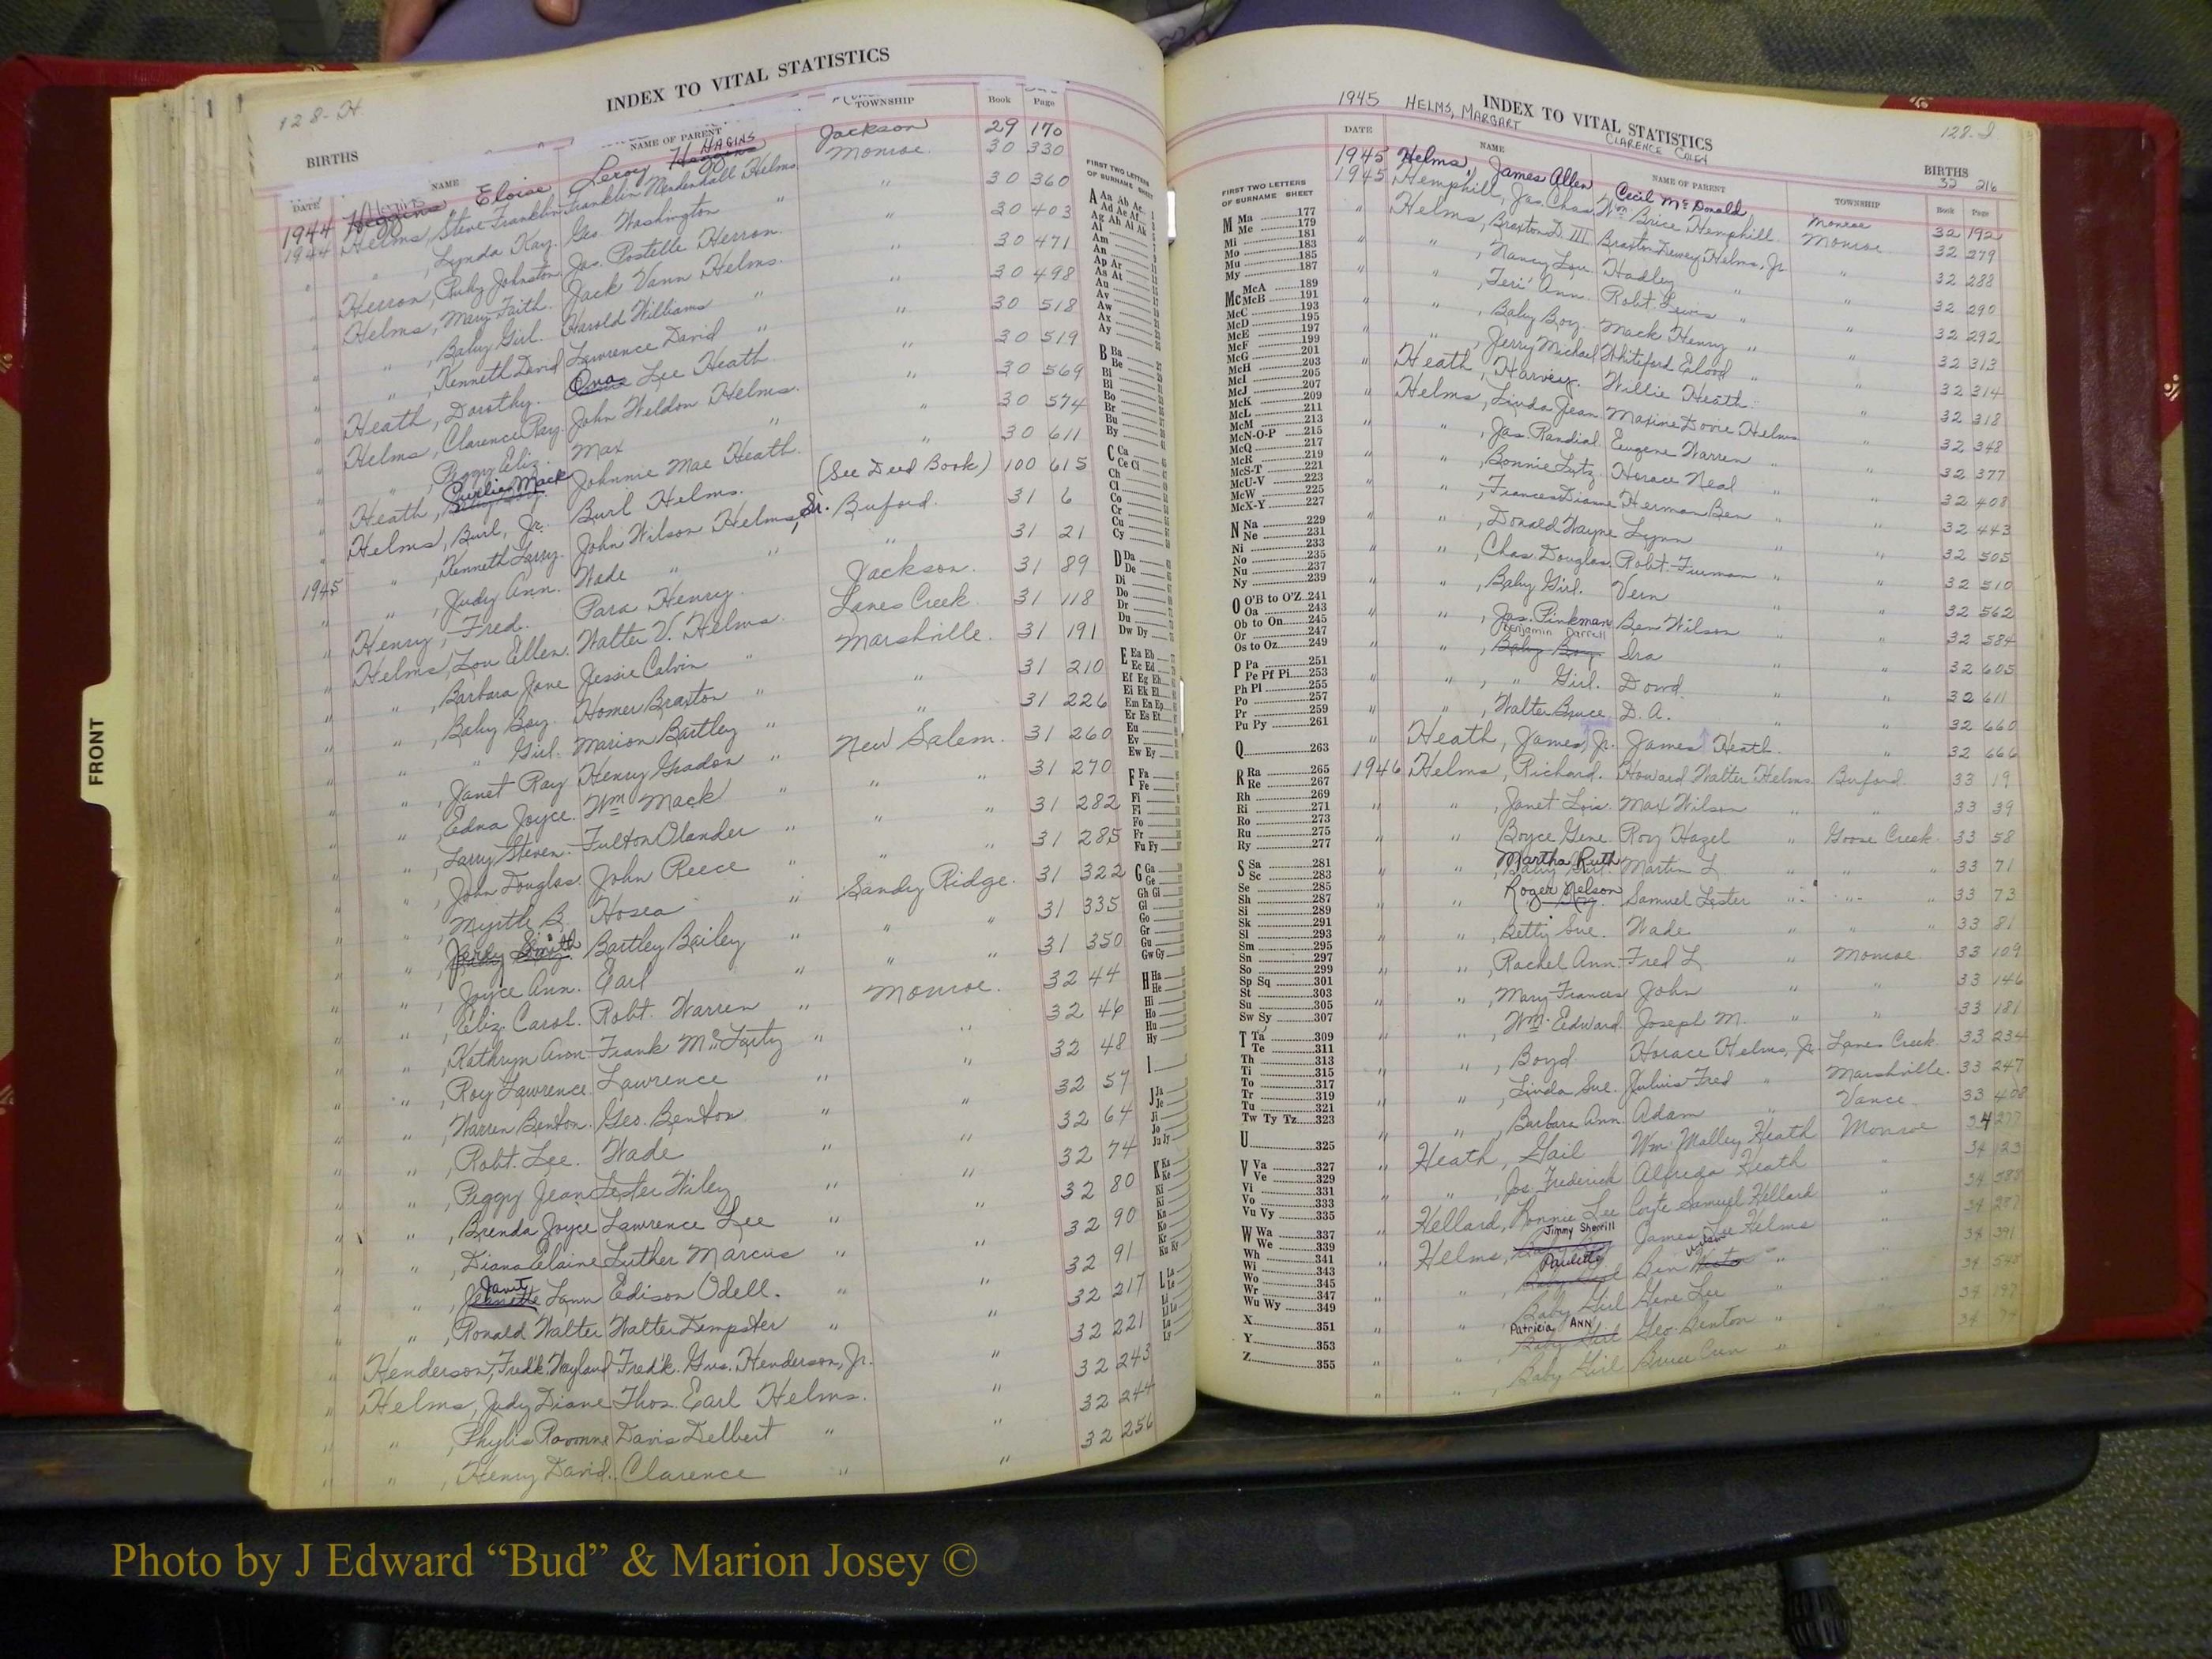 128-H
INDEX TO VITAL STATISTICS
BIRTHS
DATE NAME NAME OF PARENT TOWNSHIP Book Page
1944 Heggins Eloise Leroy HAGINS Jackson 29 170
1944 Helms, Steve Franklin Franklin Mendenhall Helms Monroe 30 330
" " , Lynda Kay. Geo. Washington " " 30 360
" Herron, Ruby Johnston Jas. Postelle Herron. " 30 403
" Helms, Mary Faith. Jack Vann Helms. " 30 471
" " , Baby Girl. Harold Williams " " 30 498
" " , Kenneth David Lawrence David " " 30 518
" Heath, Dorothy. Lee Heath " 30 519
" Helms, Clarence Ray. John Weldon Helms. " 30 569
" " , Peggy Eliz. Max " " 30 574
" Heath, Curlie Mack Johnnie Mae Heath. " 30 611
" Helms, Burl, Jr. Burl Helms. (See Deed Book) 100 615
1945 " , Kenneth Larry. John Wilson Helms, Sr. Buford. 31 6
" " , Judy Ann. Wade " " 31 21
" Henry, Fred. Para Henry. Jackson. 31 89
" Helms, Lou Ellen. Walter V. Helms. Lanes Creek. 31 118
" " , Barbara Jane Jessie Calvin " Marshville. 31 191
" " , Baby Boy. Homer Braxton " " 31 210
" " " Girl. Marion Bartley " " 31 226
" " , Janet Ray Henry Gradon " New Salem. 31 260
" " , Edna Joyce. Wm Mack " " 31 270
" " , Larry Steven. Fulton Olander " " 31 282
" " , John Douglas John Reece " " 31 285
" " , Myrtle B. Hosea " Sandy Ridge. 31 322
" " , Jerry Smith Bartley Bailey " " 31 335
" " , Joyce Ann. Earl " " 31 350
" " , Eliz. Carol. Robt. Warren " Monroe. 32 44
" " , Kathryn Ann Frank McLarty " " 32 46
" " , Roy Lawrence. Lawrence " " 32 48
" " , Warren Benton. Geo. Benton " " 32 57
" " , Robt. Lee. Wade " " 32 64
" " , Peggy Jean Lester Wiley " " 32 74
" " , Brenda Joyce Lawrence Lee " " 32 80
" " , Diana Elaine Luther Marcus " " 32 90
" " , Janit Lynn Edison Odell. " " 32 91
" " , Ronald Walter Walter Dempster " " 32 217
" Henderson, Fred'k. Wayland Fred'k. Gus. Henderson, Jr. " 32 221
" Helms, Judy Diane Thos. Earl Helms. " 32 243
" " , Phylis Ravonne Davis Delbert " " 32 244
" " , Henry David. Clarence " " 32 256
FIRST TWO LETTERS
OF SURNAME SHEET
A Aa Ab Ac
Ad Ae Af
Ag Ah Ai Ak
Al
Am
An
Ap Ar
As At
Au
Av
Aw
Ax
Ay
B Ba
Be
Bi
Bl
Bo
Br
Bu
By
C Ca
Ce Ci
Ch
Cl
Co
Cr
Cu
Cy
D Da
De
Di
Do
Dr
Du
Dw Dy
E Ea Eb
Ec Ed
Ef Eg Eh
Ei Ek El
Em En Ep
Er Es Et
Eu
Ev
Ew Ey
F Fa
Fe
Fi
Fl
Fo
Fr
Fu Fy
G Ga
Ge
Gh Gi
Gl
Go
Gr
Gu
Gw Gy
H Ha
He
Hi
Ho
Hu
Hy
I
J Ja
Je
Ji
Jo
Ju Jy
K Ka
Ke
Ki
L La
Le
FRONT
1945 HELMS, MARGART CLARENCE COLEY 128-I
INDEX TO VITAL STATISTICS
BIRTHS
DATE NAME NAME OF PARENT TOWNSHIP Book Page
1945 Helms, James Allen Cecil McDonald Monroe 32 216
1945 Hemphill, Jas. Chas. Wm Brice Hemphill. Monroe 32 192
" Helms, Braxton D. III Braxton Drewey Helms, Jr. " 32 279
" " , Nancy Lou. Hadley " " 32 288
" " , Teri Ann. Robt. Lewis " " 32 290
" " , Baby Boy. Mack Henry " " 32 292
" " , Jerry Michael Whiteford Elood " " 32 313
" Heath, Harvey. Willie Heath. " 32 314
" Helms, Linda Jean Maxine Dovie Helms " 32 318
" " , Jas. Randial Eugene Warren " " 32 348
" " , Bonnie Lutz. Horace Neal " " 32 377
" " , Frances Diane Herman Ben " " 32 408
" " , Donald Wayne Lynn " " 32 443
" " , Chas. Douglas. Robt. Furman " " 32 505
" " , Baby Girl. Vern " " 32 510
" " , Jas. Pinkman Ben Wilson " " 32 562
" " , Benjamin Darrell Baby Boy Ira " " 32 584
" " , " Girl. Dowd. " " 32 605
" " , Walter Bruce D. A. " " 32 611
" Heath, James, Jr. James Heath. " 32 660
32 666
1946 Helms, Richard. Howard Walter Helms Buford. 33 19
" " , Janet Lois. Max Wilson " " 33 39
" " , Boyce Gene. Roy Hazel " Goose Creek. 33 58
" " , Martha Ruth Baby Girl. Martin L. " " 33 71
" " , Roger Nelson Boy. Samuel Lester " " 33 73
" " , Betty Sue. Wade " " 33 81
" " , Rachel Ann. Fred L. " Monroe 33 109
" " , Mary Frances John " " 33 146
" " , Wm. Edward Joseph M. " " 33 181
" " , Boyd Horace Helms, Jr. Lanes Creek. 33 234
" " , Linda Sue. Julius Fred " Marshville. 33 247
" " , Barbara Ann. Adam " Vance. 33 408
" Heath, Gail Wm. Malley Heath Monroe 34
" " , Jos. Frederick Alfreda Heath " 34 123
" Hellard, Ronnie Lee Coyte Samuel Hellard " 34
" Helms, Jimmy Sherrill James Lee Helms " 34
" " , Paulette Baby Girl Ben " 34 391
" " , Baby Girl Gene Lee " 34
" " , Patricia ANN Baby Girl Geo. Benton " 34
" " , Baby Girl Bruce " 34
FIRST TWO LETTERS
OF SURNAME SHEET
M Ma 177
Me 179
Mi 181
Mo 183
Mu 185
My 187
Mc McA 189
McB 191
McC 193
McD 195
McE 197
McF 199
McG 201
McH 203
McI 205
McJ 207
McK 209
McL 211
McM 213
McN-O-P 215
McQ 217
McR 219
McS-T 221
McU-V 223
McW 225
McX-Y 227
N Na 229
Ne 231
Ni 233
No 235
Nu 237
Ny 239
O O'B to O'Z 241
Oa 243
Ob to On 245
Or 247
Os to Oz 249
P Pa 251
Pe Pf Pi 253
Ph Pl 255
Po 257
Pr 259
Pu Py 261
Q 263
R Ra 265
Re 267
Rh 269
Ri 271
Ro 273
Ru 275
Ry 277
S Sa 281
Sc 283
Se 285
Sh 287
Si 289
Sk 291
Sl 293
Sm 295
Sn 297
So 299
Sp Sq 301
St 303
Su 305
Sw Sy 307
T Ta 309
Te 311
Th 313
Ti 315
To 317
Tr 319
Tu 321
Tw Ty Tz 323
U 325
V Va 327
Ve 329
Vi 331
Vo 333
Vu Vy 335
W Wa 337
We 339
Wh 341
Wi 343
Wo 345
Wr 347
Wu Wy 349
X 351
Y 353
Z 355
Photo by J Edward “Bud” & Marion Josey ©